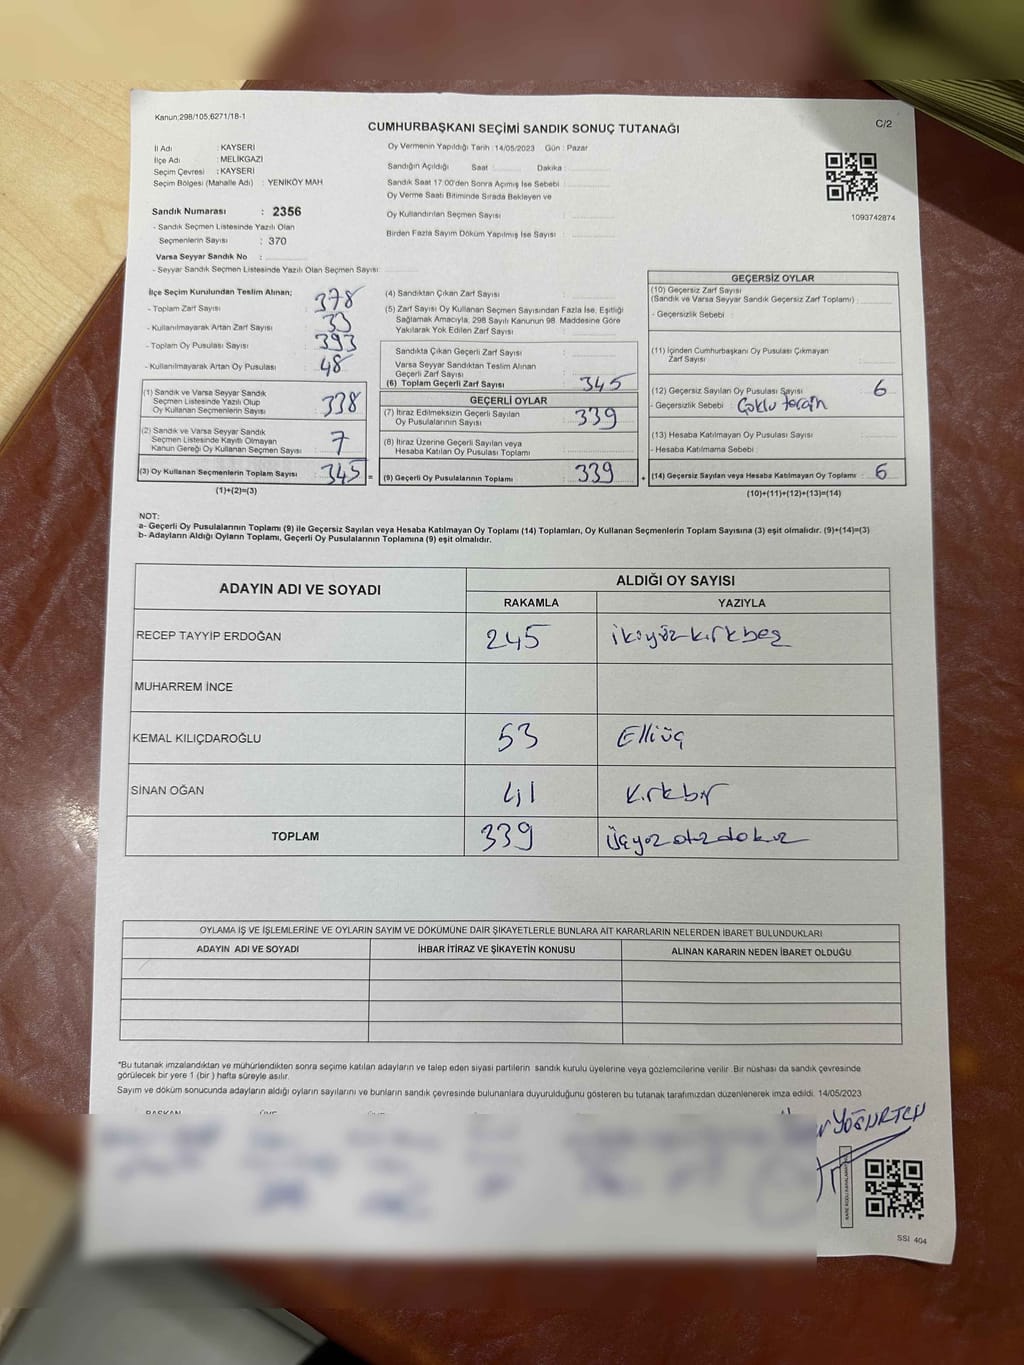 Kanun:298/105,6271/18-1
C/2
CUMHURBAŞKANI SEÇİMİ SANDIK SONUÇ TUTANAĞI
İl Adı : KAYSERİ
İlçe Adı : MELİKGAZİ
Seçim Çevresi : KAYSERİ
Seçim Bölgesi (Mahalle Adı) : YENİKÖY MAH
Sandık Numarası : 2356
- Sandık Seçmen Listesinde Yazılı Olan
Seçmenlerin Sayısı : 370
Varsa Seyyar Sandık No :
- Seyyar Sandık Seçmen Listesinde Yazılı Olan Seçmen Sayısı :
Oy Vermenin Yapıldığı Tarih : 14/05/2023 Gün : Pazar
Sandığın Açıldığı Saat : Dakika :
Sandık Saat 17:00'den Sonra Açımış İse Sebebi :
Oy Verme Saati Bitiminde Sırada Bekleyen ve
Oy Kullandırılan Seçmen Sayısı :
Birden Fazla Sayım Döküm Yapılmış İse Sayısı :
1093742874
İlçe Seçim Kurulundan Teslim Alınan;
- Toplam Zarf Sayısı : 378
- Kullanılmayarak Artan Zarf Sayısı : 33
- Toplam Oy Pusulası Sayısı : 393
- Kullanılmayarak Artan Oy Pusulası : 48
(1) Sandık ve Varsa Seyyar Sandık
Seçmen Listesinde Yazılı Olup
Oy Kullanan Seçmenlerin Sayısı : 338
(2) Sandık ve Varsa Seyyar Sandık
Seçmen Listesinde Kayıtlı Olmayan
Kanun Gereği Oy Kullanan Seçmen Sayısı : 7
(3) Oy Kullanan Seçmenlerin Toplam Sayısı : 345 =
(1)+(2)=(3)
(4) Sandıktan Çıkan Zarf Sayısı :
(5) Zarf Sayısı Oy Kullanan Seçmen Sayısından Fazla İse, Eşitliği
Sağlamak Amacıyla, 298 Sayılı Kanunun 98. Maddesine Göre
Yakılarak Yok Edilen Zarf Sayısı :
Sandıkta Çıkan Geçerli Zarf Sayısı :
Varsa Seyyar Sandıktan Teslim Alınan
Geçerli Zarf Sayısı :
(6) Toplam Geçerli Zarf Sayısı : 345
GEÇERLİ OYLAR
(7) İtiraz Edilmeksizin Geçerli Sayılan
Oy Pusulalarının Sayısı : 339
(8) İtiraz Üzerine Geçerli Sayılan veya
Hesaba Katılan Oy Pusulası Toplamı :
(9) Geçerli Oy Pusulalarının Toplamı : 339 +
GEÇERSİZ OYLAR
(10) Geçersiz Zarf Sayısı
(Sandık ve Varsa Seyyar Sandık Geçersiz Zarf Toplamı) :
- Geçersizlik Sebebi :
(11) İçinden Cumhurbaşkanı Oy Pusulası Çıkmayan
Zarf Sayısı :
(12) Geçersiz Sayılan Oy Pusulası Sayısı : 6
- Geçersizlik Sebebi : Çoklu tercih
(13) Hesaba Katılmayan Oy Pusulası Sayısı :
- Hesaba Katılmama Sebebi :
(14) Geçersiz Sayılan veya Hesaba Katılmayan Oy Toplamı : 6
(10)+(11)+(12)+(13)=(14)
NOT:
a- Geçerli Oy Pusulalarının Toplamı (9) ile Geçersiz Sayılan veya Hesaba Katılmayan Oy Toplamı (14) Toplamları, Oy Kullanan Seçmenlerin Toplam Sayısına (3) eşit olmalıdır. (9)+(14)=(3)
b- Adayların Aldığı Oyların Toplamı, Geçerli Oy Pusulalarının Toplamına (9) eşit olmalıdır.
ADAYIN ADI VE SOYADI
ALDIĞI OY SAYISI
RAKAMLA YAZIYLA
RECEP TAYYİP ERDOĞAN 245 ikiyüzkırkbeş
MUHARREM İNCE
KEMAL KILIÇDAROĞLU 53 Elliüç
SİNAN OĞAN 41 kırkbir
TOPLAM 339 Üçyüzotuzdokuz
OYLAMA İŞ VE İŞLEMLERİNE VE OYLARIN SAYIM VE DÖKÜMÜNE DAİR ŞİKAYETLERLE BUNLARA AİT KARARLARIN NELERDEN İBARET BULUNDUKLARI
ADAYIN ADI VE SOYADI İHBAR İTİRAZ VE ŞİKAYETİN KONUSU ALINAN KARARIN NEDEN İBARET OLDUĞU
*Bu tutanak imzalandıktan ve mühürlendikten sonra seçime katılan adayların ve talep eden siyasi partilerin sandık kurulu üyelerine veya gözlemcilerine verilir. Bir nüshası da sandık çevresinde
görülecek bir yere 1 (bir ) hafta süreyle asılır.
Sayım ve döküm sonucunda adayların aldığı oyların sayılarını ve bunların sandık çevresinde bulunanlara duyurulduğunu gösteren bu tutanak tarafımızdan düzenlenerek imza edildi. 14/05/2023
BAŞKAN ÜYE ÜYE
SSI 404